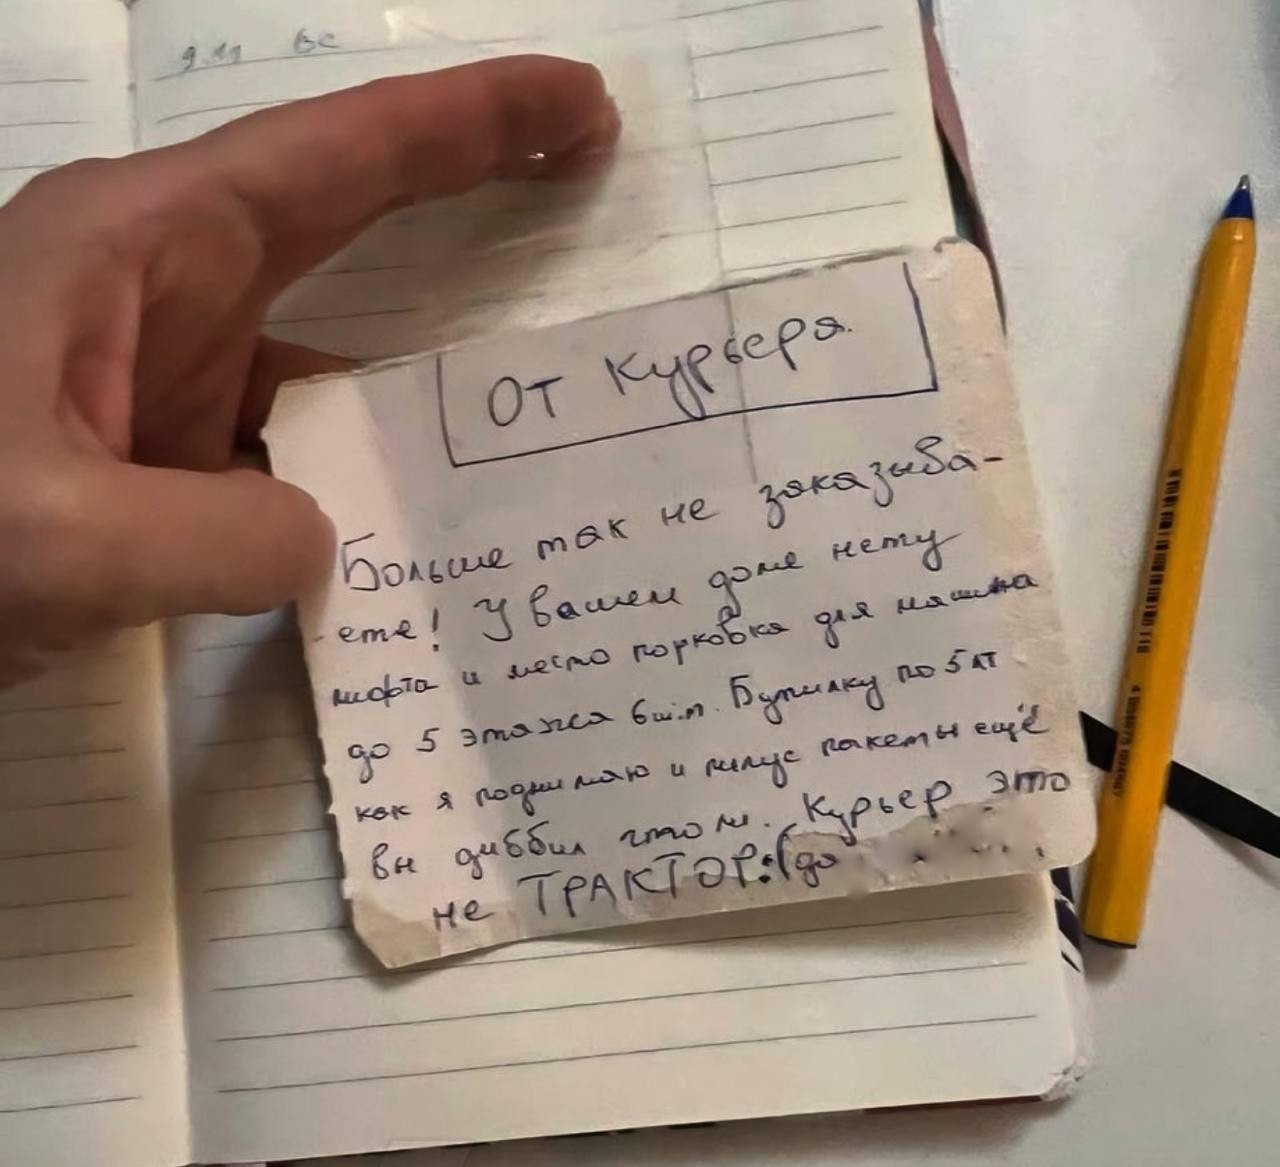 9.11 Вс
От Курьера.
Больше так не заказыва-
ете! У вашем доме нету
лифта и место порковка для машина
до 5 этажа 6 шт. Бутилку по 5 лт
как я поднимаю и плюс пакеты ещё
вы диббил что ли. Курьер это
не ТРАКТОР:(до